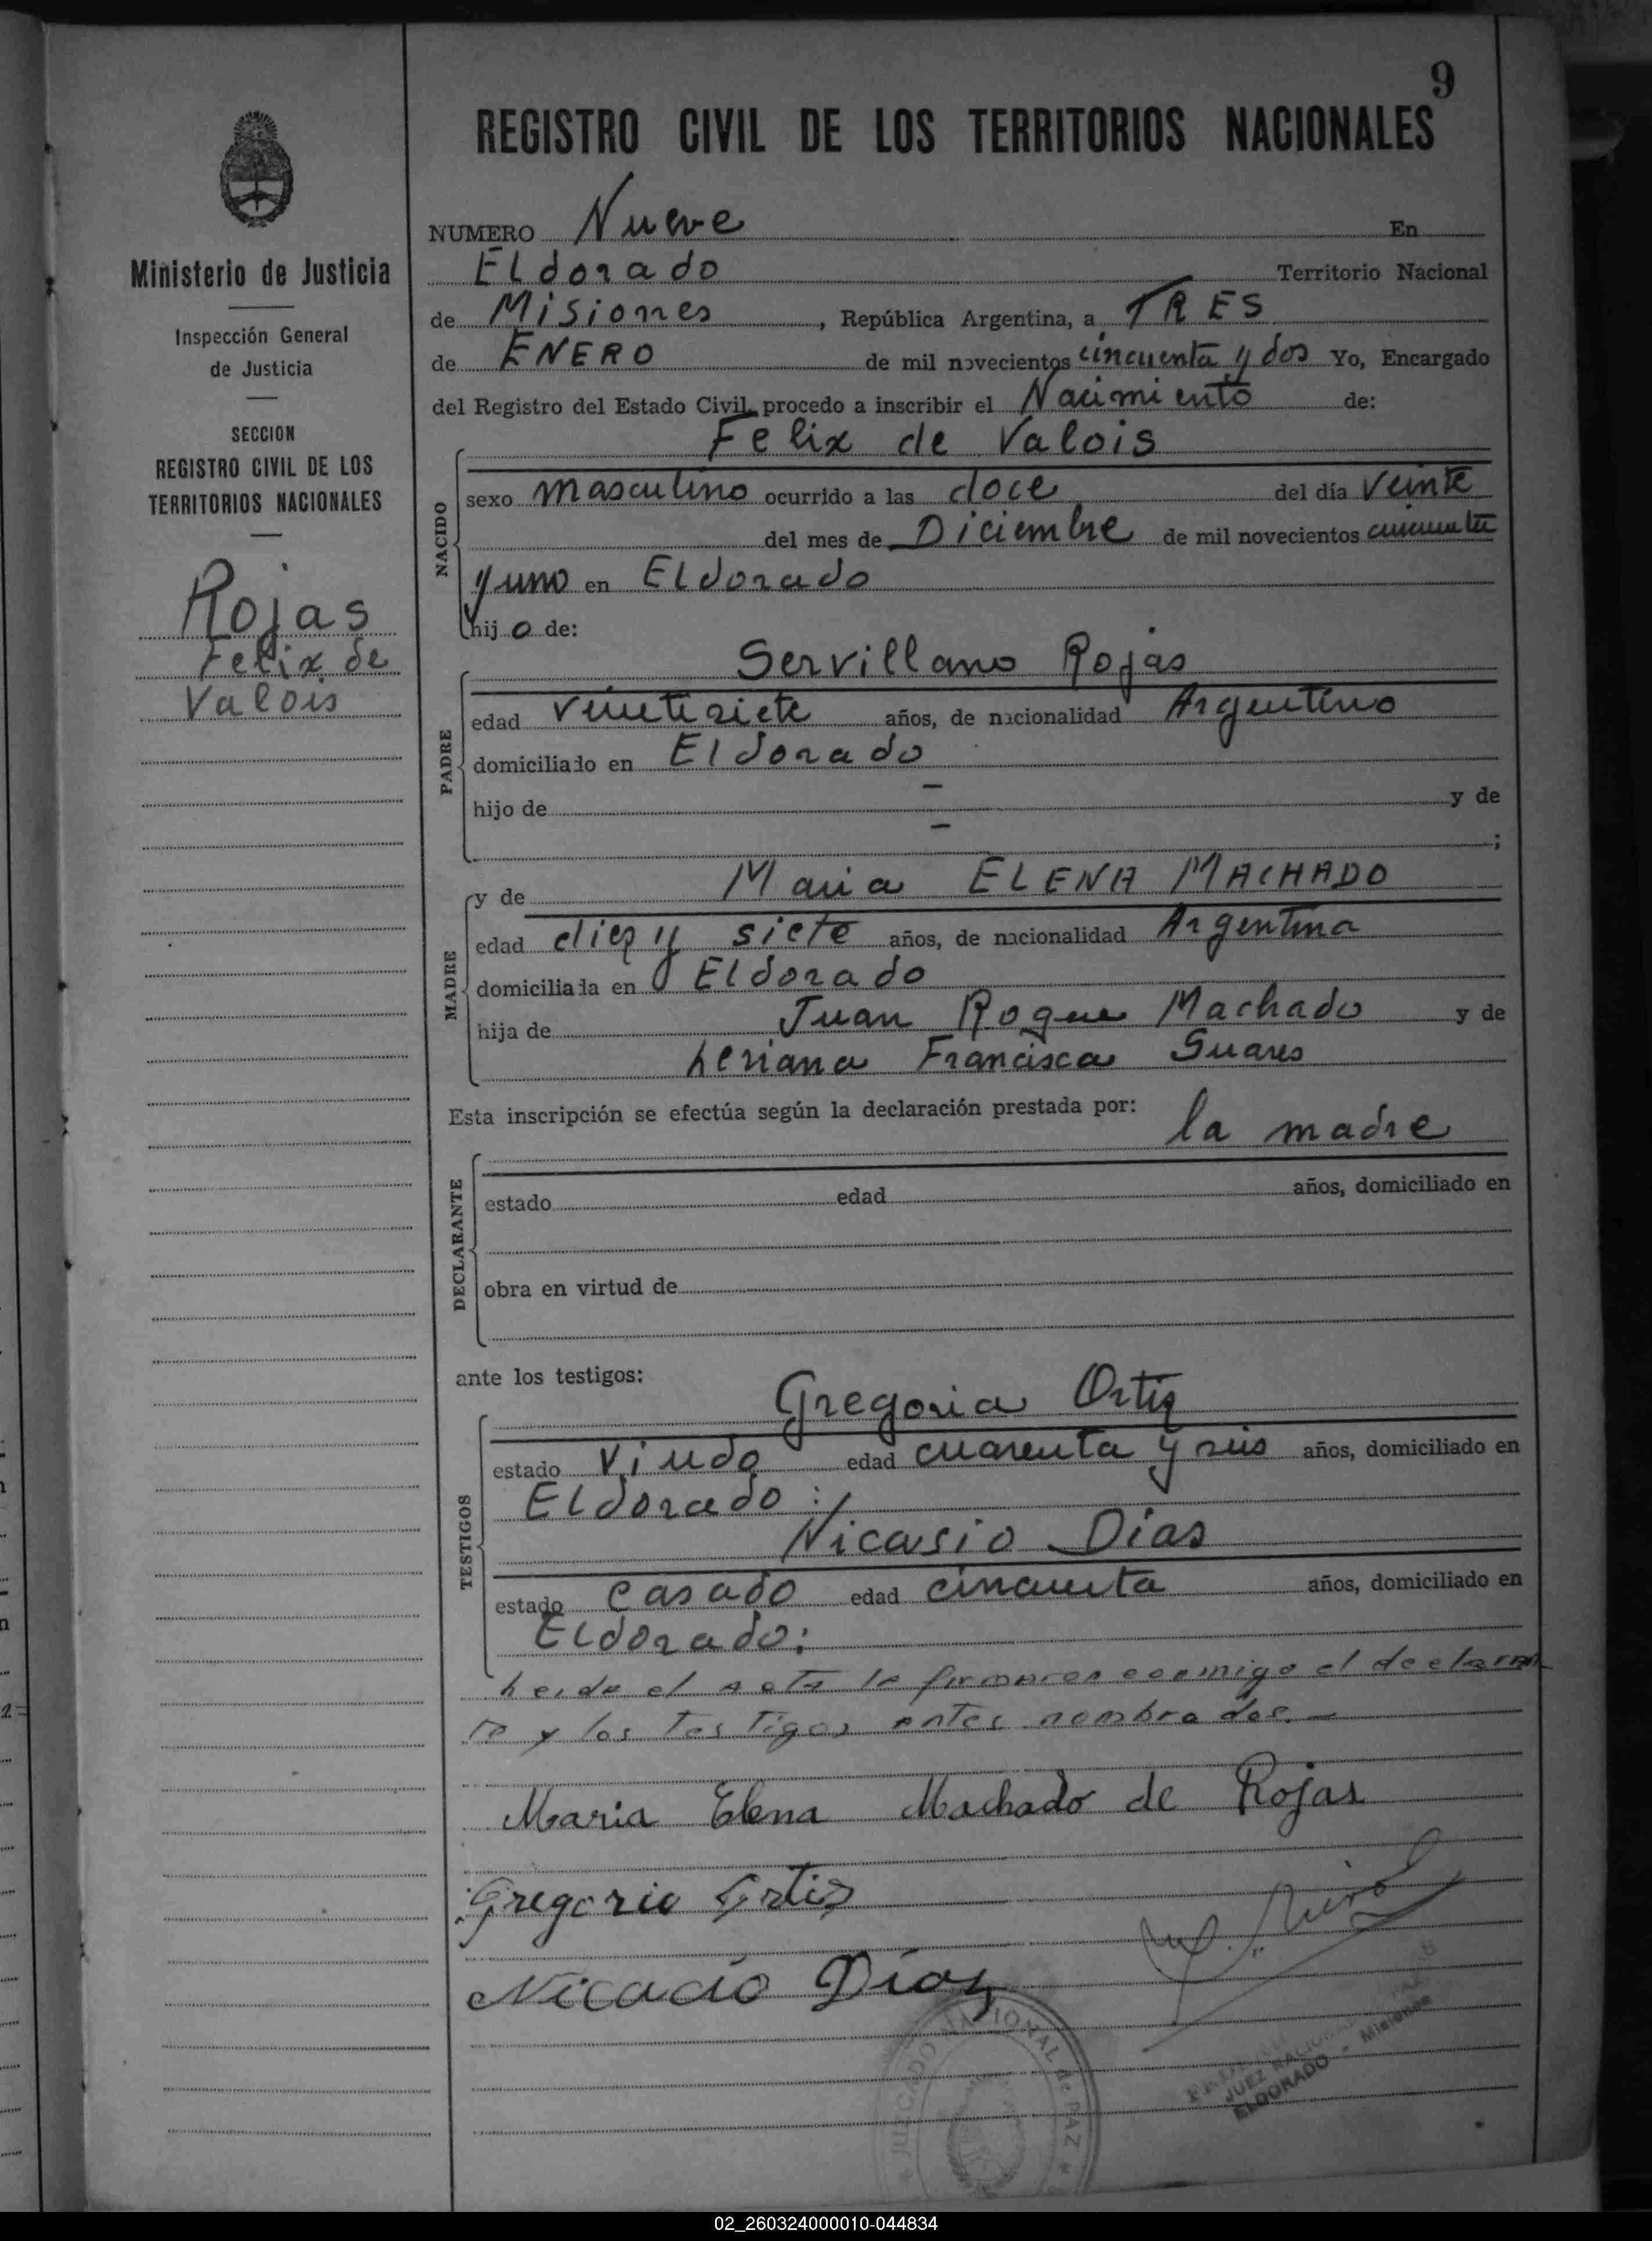 9
REGISTRO CIVIL DE LOS TERRITORIOS NACIONALES
Ministerio de Justicia
Inspección General
de Justicia
SECCION
REGISTRO CIVIL DE LOS
TERRITORIOS NACIONALES
Rojas
Felix de
Valois
NUMERO Nueve En
Eldorado Territorio Nacional
de Misiones, República Argentina, a TRES
de ENERO de mil novecientos cincuenta y dos Yo, Encargado
del Registro del Estado Civil, procedo a inscribir el Nacimiento de:
NACIDO
Felix de Valois
sexo masculino ocurrido a las doce del día veinte
del mes de Diciembre de mil novecientos cincuenta
y uno en Eldorado
hijo de:
PADRE
Servillano Rojas
edad veintisiete años, de nacionalidad Argentino
domiciliado en Eldorado
hijo de – y de
– ;
MADRE
y de Maria ELENA MACHADO
edad diez y siete años, de nacionalidad Argentina
domiciliada en Eldorado
hija de Juan Roque Machado y de
Francisca Suares
Esta inscripción se efectúa según la declaración prestada por:
la madre
DECLARANTE
estado edad años, domiciliado en
obra en virtud de
ante los testigos:
TESTIGOS
Gregoria Ortiz
estado Viudo edad cuarenta y seis años, domiciliado en
Eldorado:
Nicasio Dias
estado casado edad cincuenta años, domiciliado en
Eldorado:
Leida el acta la firmaron conmigo el declaran
te y los testigos antes nombrados.–
Maria Elena Machado de Rojas
Gregorio Ortiz
Nicacio Díaz
JUZGADO NACIONAL de PAZ
JUEZ NACIONAL PAZ
ELDORADO - Misiones
02_260324000010-044834